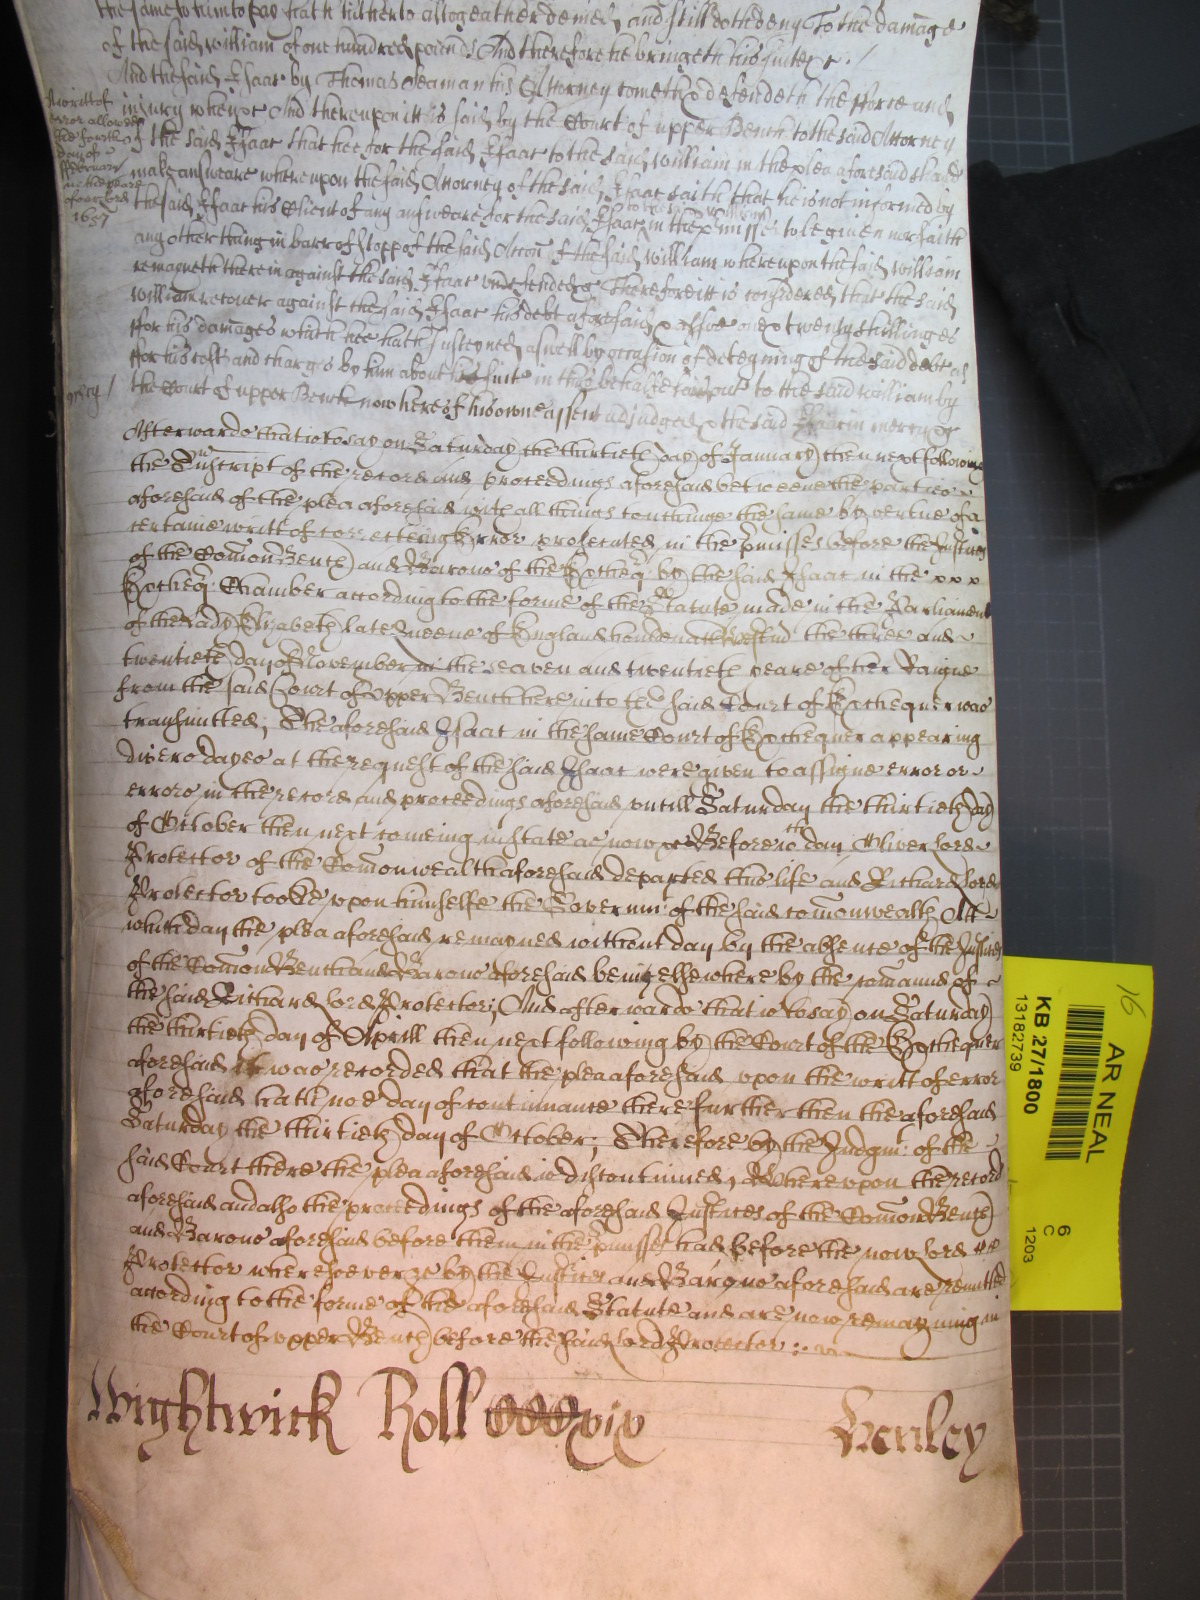 the same to him to pay hath hitherto alltogeather denied and still doth deny To the damage
of the said William of one hundred pounds And therefore he bringeth his suite &c. /
And the said Isaac by Thomas Seaman his Attorney cometh & defendeth the fforce and
injury when &c And thereupon itt is said by the Court of upper Bench to the said Attorney
of the said Isaac that hee for the said Isaac to the said William in the plea aforesaid should
make answeare whereupon the said Attorney of the said Isaac saith that he is not informed by
the said Isaac his Client of any answeare for the said Isaac to the said William in the p'misses to be given nor saith
any other thing in barr or stopp of the said Accon of the said William whereupon the said William
remayneth therein against the said Isaac undefended &c Therefore itt is considered that the said
William recover against the said Isaac his debt aforesaid & alsoe one & twenty shillinges
ffor his damages which hee hath susteyned aswell by occasion of deteyning of the said debt as
ffor his costs and charges by him about his suite in this behalfe laid out to the said William by
the Court of upper Bench now here of his owne assent adjudged & the said Isaac in mercy &c
A writt of
error allowed
the fourth
day of
ffebruary
in the yeare
of our lord
1657
mercy /
Afterwards that is to say on Saturday the thirtieth day of January then next following
the Transcript of the record and proceedings aforesaid betweene the parties
aforesaid of the plea aforesaid with all things touchinge the same by vertue of a
certaine writt of correcting Error prosecuted in the p'misses before the Justices
of the Comon Bench and Barons of the Excheq' by the said Isaac in the x x x
Excheq' Chamber according to the forme of the Statute made in the Parliament
of the Lady Elizabeth late Queene of England houlden att Westm' the three and
twentieth day of November in the seaven and twentieth yeare of her Raigne
from the said Court of Upper Bench here into the said Court of Exchequer was
transmitted; The aforesaid Isaac in the same Court of Exchequer appearing
divers dayes at the request of the said Isaac were given to assigne error or
errors in the record and proceedings aforesaid untill Saturday the thirtieth day
of October then next comeing in state as now &c Before wch day Oliver Lord
Protector of the Comonwealth aforesaid departed this life and Richard Lord
Protector tooke upon himselfe the Governmt of the said comonwealth Att
which day the plea aforesaid remayned without day by the absence of the Justices
of the Comon Bench and Barons aforesaid being elsewhere by the comannd of
the said Richard Lord Protector; And afterwards that is to say on Saturday
the thirtieth day of Aprill then next following by the Court of the Exchequer
aforesaid it was recorded that the plea aforesaid upon the writt of error
aforesaid hath noe day of continuance there further then the aforesaid
Saturday the thirtieth day of October; Therefore by the Judgmt of the
said Court there the plea aforesaid is discontinued, Whereupon the record
aforesaid and also the proceedings of the aforesaid Justices of the Comon Bench
and Barons aforesaid before them in the p'misses had before the now Lord
Protector wheresoever &c by the Justices and Barons aforesaid are remitted
according to the forme of the aforesaid Statute and are now remayning in
the Court of upper Bench before the said Lord Protector :
Wightwick Roll xix
Henley
16
AR NEAL
KB 27/1800
13182739
6
C
1203